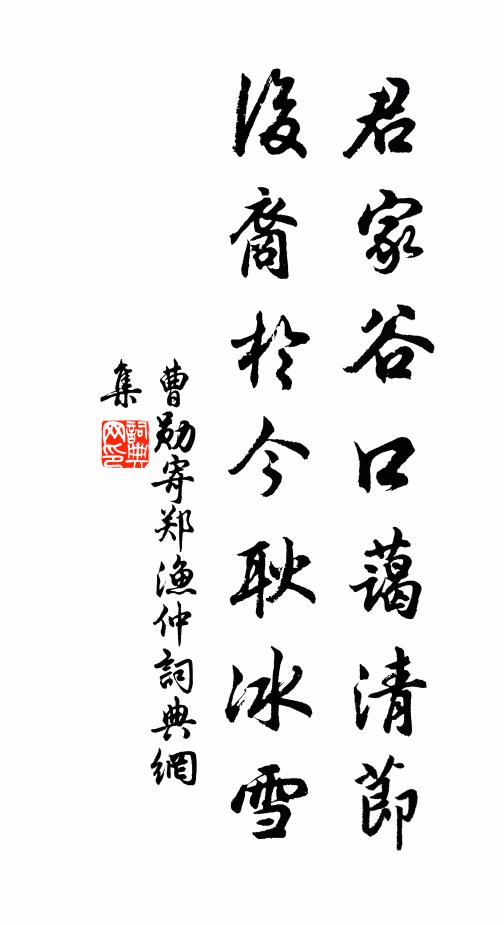 君家谷口蔼清節
後裔於今耿冰雪
曹勛寄郑漁仲詞典網
集
詞典网印